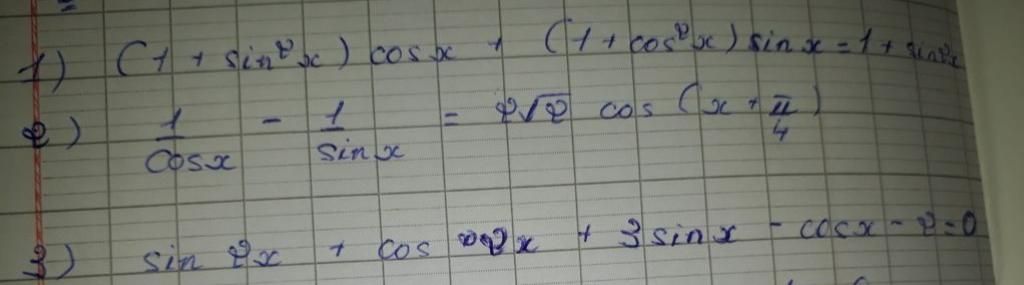 1) (1 + sin²x) cosx + (1 + cos²x) sinx = 1 + sin2x
2) 1/cosx - 1/sinx = 2√2 cos (x + π/4)
3) sin 2x + cos 2x + 3 sinx - cosx - 2 = 0